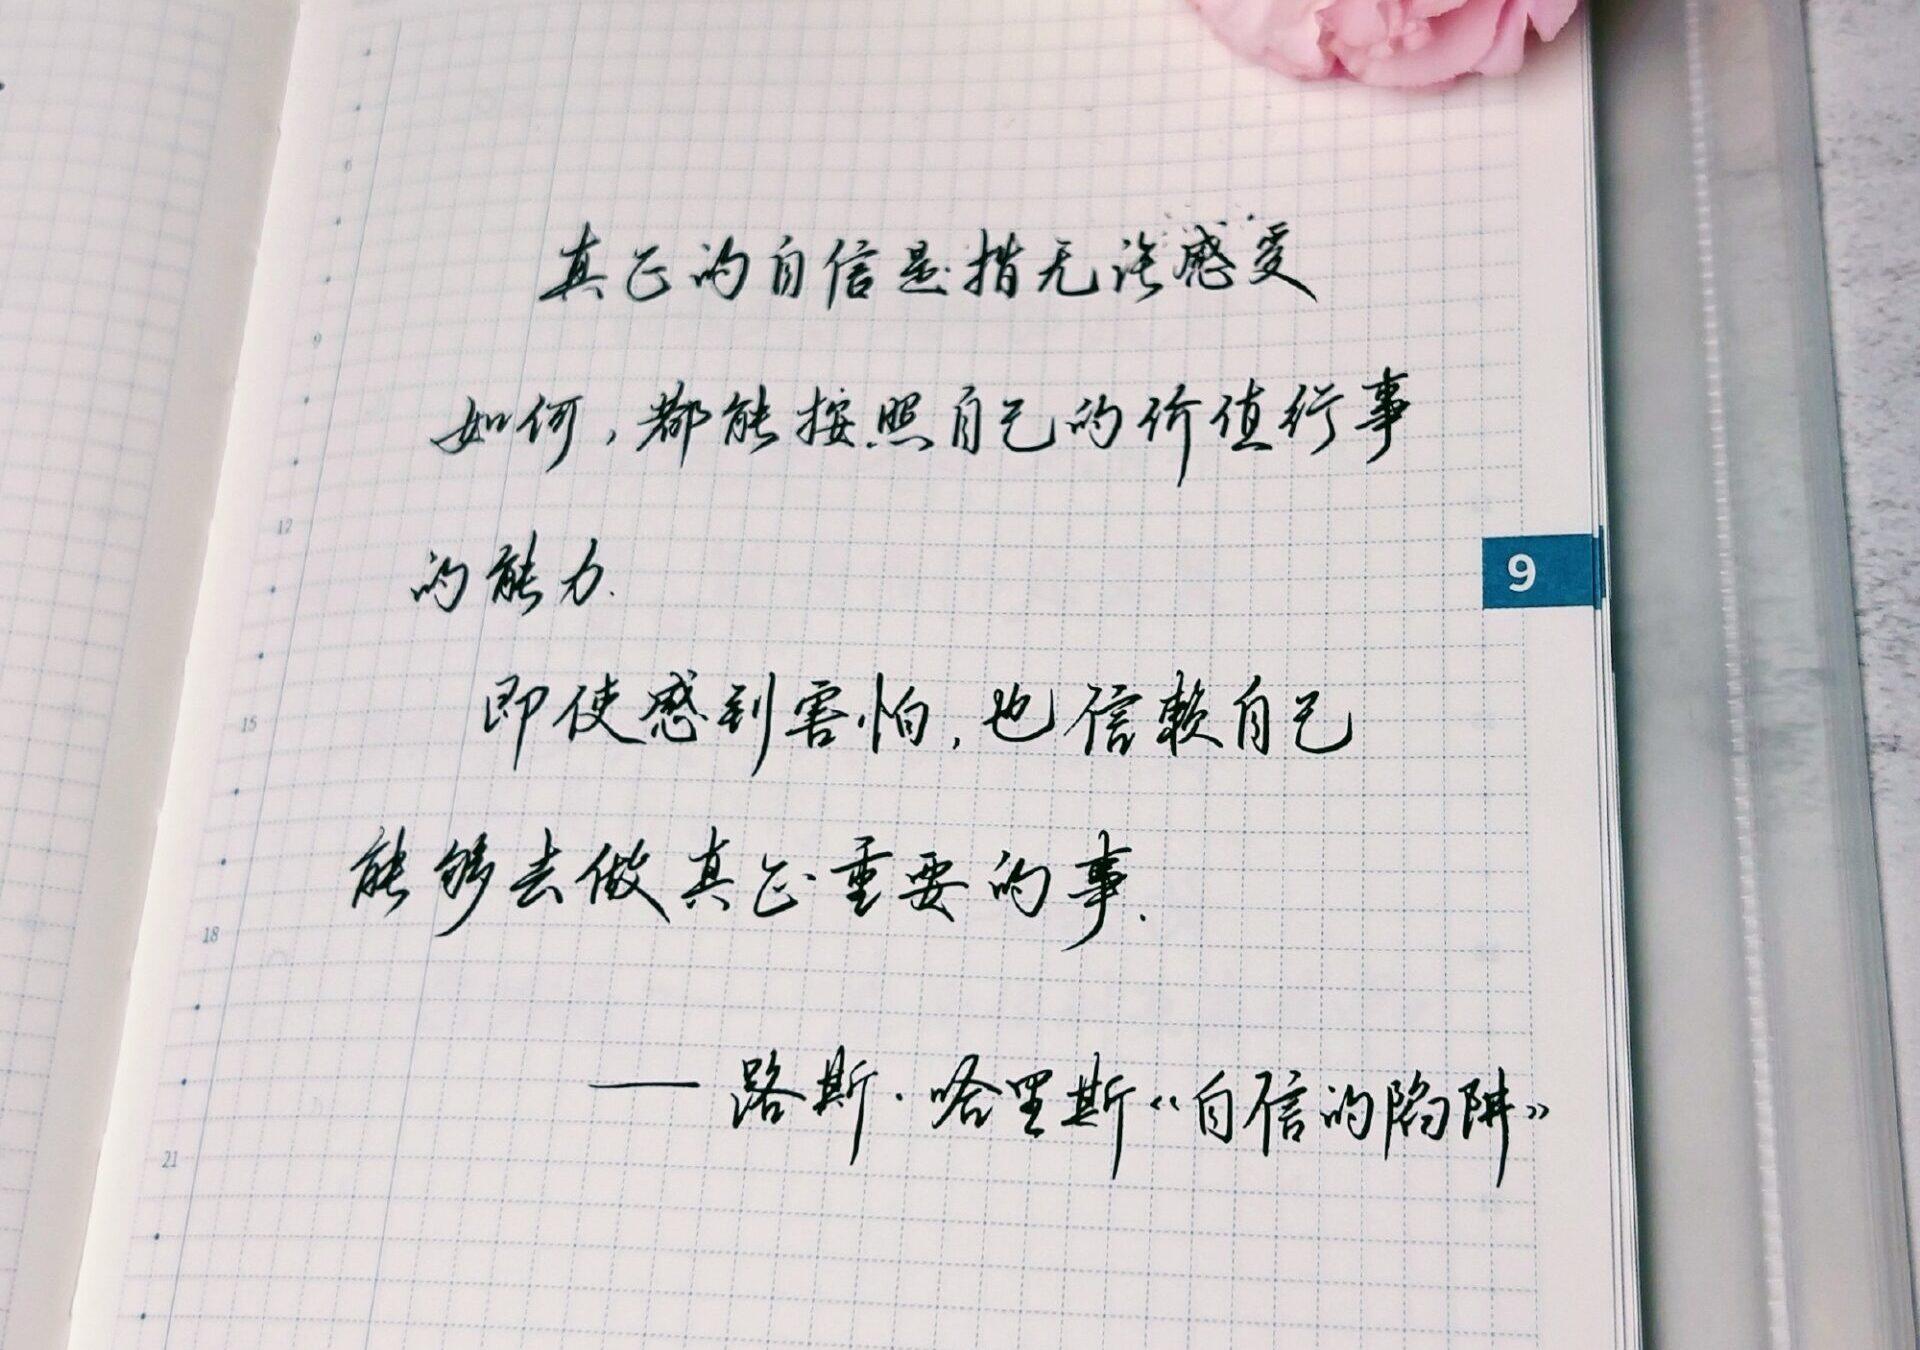 6
真正的自信是指无论感受
9
如何，都能按照自己的价值行事
12
的能力.
9
即使感到害怕，也信赖自己
15
能够去做真正重要的事.
18
——路斯·哈里斯《自信的陷阱》
21